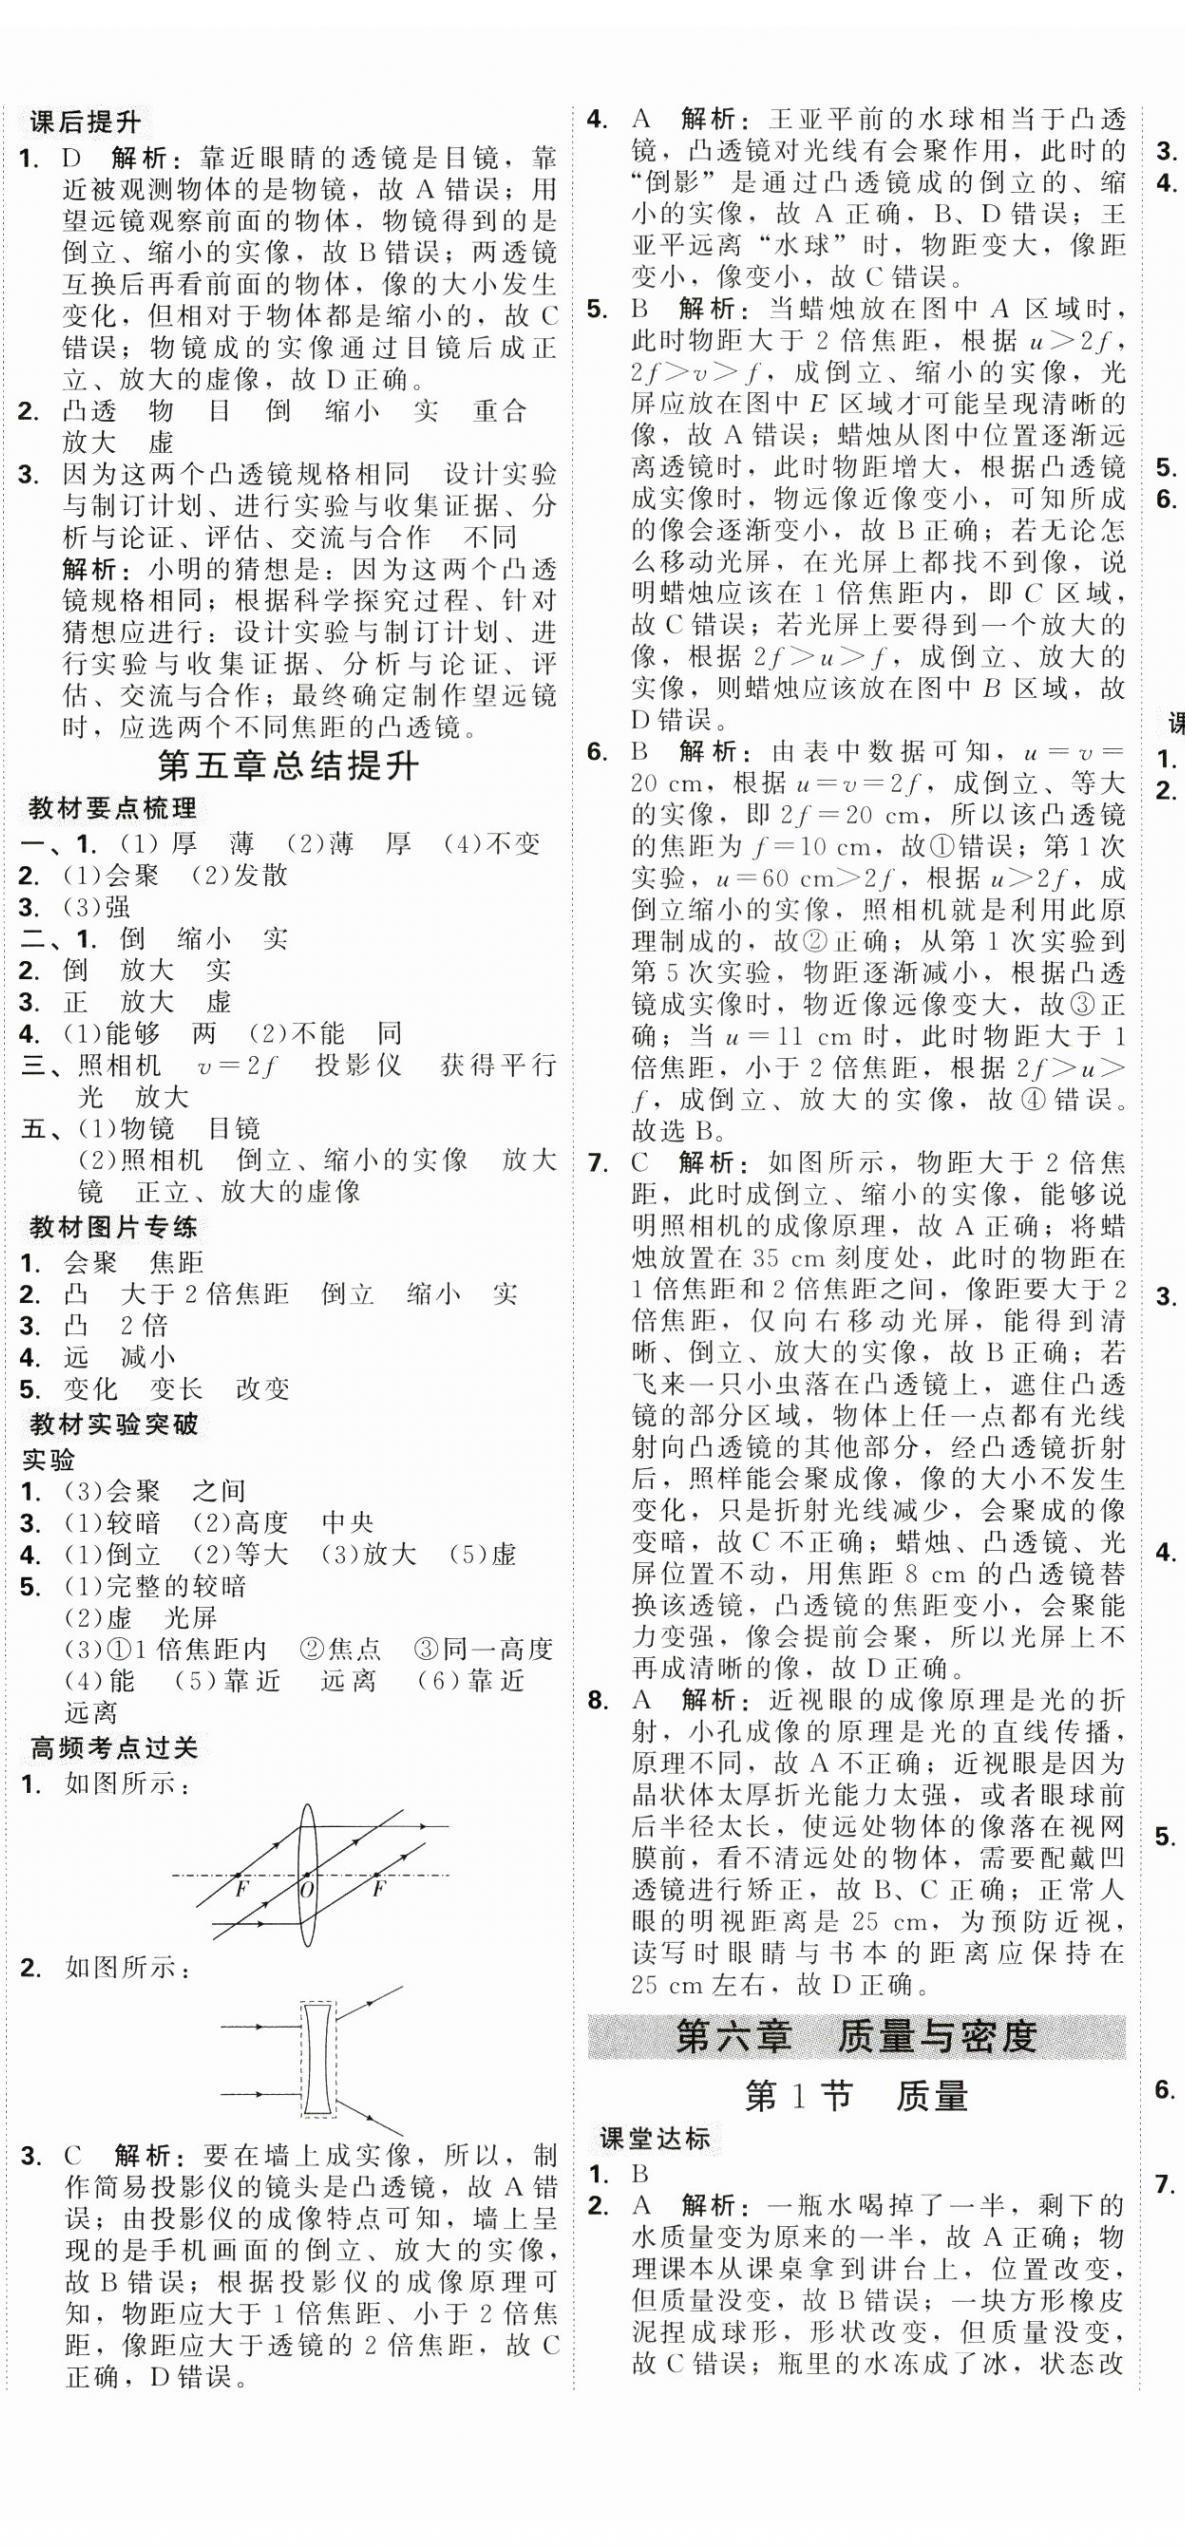 课后提升
1. D 解析：靠近眼睛的透镜是目镜，靠
近被观测物体的是物镜，故 A 错误；用
望远镜观察前面的物体，物镜得到的是
倒立、缩小的实像，故 B 错误；两透镜
互换后再看前面的物体，像的大小发生
变化，但相对于物体都是缩小的，故 C
错误；物镜成的实像通过目镜后成正
立、放大的虚像，故 D 正确。
2. 凸透 物 目 倒 缩小 实 重合
放大 虚
3. 因为这两个凸透镜规格相同 设计实验
与制订计划、进行实验与收集证据、分
析与论证、评估、交流与合作 不同
解析：小明的猜想是：因为这两个凸透
镜规格相同；根据科学探究过程、针对
猜想应进行：设计实验与制订计划、进
行实验与收集证据、分析与论证、评
估、交流与合作；最终确定制作望远镜
时，应选两个不同焦距的凸透镜。
第五章总结提升
教材要点梳理
一、1. (1) 厚 薄 (2)薄 厚 (4)不变
2. (1)会聚 (2)发散
3. (3)强
二、1. 倒 缩小 实
2. 倒 放大 实
3. 正 放大 虚
4. (1)能够 两 (2)不能 同
三、照相机 v=2f 投影仪 获得平行
光 放大
五、(1)物镜 目镜
(2)照相机 倒立、缩小的实像 放大
镜 正立、放大的虚像
教材图片专练
1. 会聚 焦距
2. 凸 大于 2 倍焦距 倒立 缩小 实
3. 凸 2 倍
4. 远 减小
5. 变化 变长 改变
教材实验突破
实验
1. (3)会聚 之间
3. (1)较暗 (2)高度 中央
4. (1)倒立 (2)等大 (3)放大 (5)虚
5. (1)完整的较暗
(2)虚 光屏
(3)①1 倍焦距内 ②焦点 ③同一高度
(4)能 (5)靠近 远离 (6)靠近
远离
高频考点过关
1. 如图所示：
F O F
2. 如图所示：
3. C 解析：要在墙上成实像，所以，制
作简易投影仪的镜头是凸透镜，故 A 错
误；由投影仪的成像特点可知，墙上呈
现的是手机画面的倒立、放大的实像，
故 B 错误；根据投影仪的成像原理可
知，物距应大于 1 倍焦距、小于 2 倍焦
距，像距应大于透镜的 2 倍焦距，故 C
正确，D 错误。
4. A 解析：王亚平前的水球相当于凸透
镜，凸透镜对光线有会聚作用，此时的
“倒影”是通过凸透镜成的倒立的、缩
小的实像，故 A 正确，B、D 错误；王
亚平远离“水球”时，物距变大，像距
变小，像变小，故 C 错误。
5. B 解析：当蜡烛放在图中 A 区域时，
此时物距大于 2 倍焦距，根据 u>2f，
2f>v>f，成倒立、缩小的实像，光
屏应放在图中 E 区域才可能呈现清晰的
像，故 A 错误；蜡烛从图中位置逐渐远
离透镜时，此时物距增大，根据凸透镜
成实像时，物远像近像变小，可知所成
的像会逐渐变小，故 B 正确；若无论怎
么移动光屏，在光屏上都找不到像，说
明蜡烛应该在 1 倍焦距内，即 C 区域，
故 C 错误；若光屏上要得到一个放大的
像，根据 2f>u>f，成倒立、放大的
实像，则蜡烛应该放在图中 B 区域，故
D 错误。
6. B 解析：由表中数据可知，u=v=
20 cm，根据 u=v=2f，成倒立、等大
的实像，即 2f=20 cm，所以该凸透镜
的焦距为 f=10 cm，故①错误；第 1 次
实验，u=60 cm>2f，根据 u>2f，成
倒立缩小的实像，照相机就是利用此原
理制成的，故②正确；从第 1 次实验到
第 5 次实验，物距逐渐减小，根据凸透
镜成实像时，物近像远像变大，故③正
确；当 u=11 cm 时，此时物距大于 1
倍焦距，小于 2 倍焦距，根据 2f>u>
f，成倒立、放大的实像，故④错误。
故选 B。
7. C 解析：如图所示，物距大于 2 倍焦
距，此时成倒立、缩小的实像，能够说
明照相机的成像原理，故 A 正确；将蜡
烛放置在 35 cm 刻度处，此时的物距在
1 倍焦距和 2 倍焦距之间，像距要大于 2
倍焦距，仅向右移动光屏，能得到清
晰、倒立、放大的实像，故 B 正确；若
飞来一只小虫落在凸透镜上，遮住凸透
镜的部分区域，物体上任一点都有光线
射向凸透镜的其他部分，经凸透镜折射
后，照样能会聚成像，像的大小不发生
变化，只是折射光线减少，会聚成的像
变暗，故 C 不正确；蜡烛、凸透镜、光
屏位置不动，用焦距 8 cm 的凸透镜替
换该透镜，凸透镜的焦距变小，会聚能
力变强，像会提前会聚，所以光屏上不
再成清晰的像，故 D 正确。
8. A 解析：近视眼的成像原理是光的折
射，小孔成像的原理是光的直线传播，
原理不同，故 A 不正确；近视眼是因为
晶状体太厚折光能力太强，或者眼球前
后半径太长，使远处物体的像落在视网
膜前，看不清远处的物体，需要配戴凹
透镜进行矫正，故 B、C 正确；正常人
眼的明视距离是 25 cm，为预防近视，
读写时眼睛与书本的距离应保持在
25 cm 左右，故 D 正确。
第六章 质量与密度
第 1 节 质量
课堂达标
1. B
2. A 解析：一瓶水喝掉了一半，剩下的
水质量变为原来的一半，故 A 正确；物
理课本从课桌拿到讲台上，位置改变，
但质量没变，故 B 错误；一块方形橡皮
泥捏成球形，形状改变，但质量没变，
故 C 错误；瓶里的水冻成了冰，状态改
3.
4.
5.
6.
1.
2.
3.
4.
5.
6.
7.